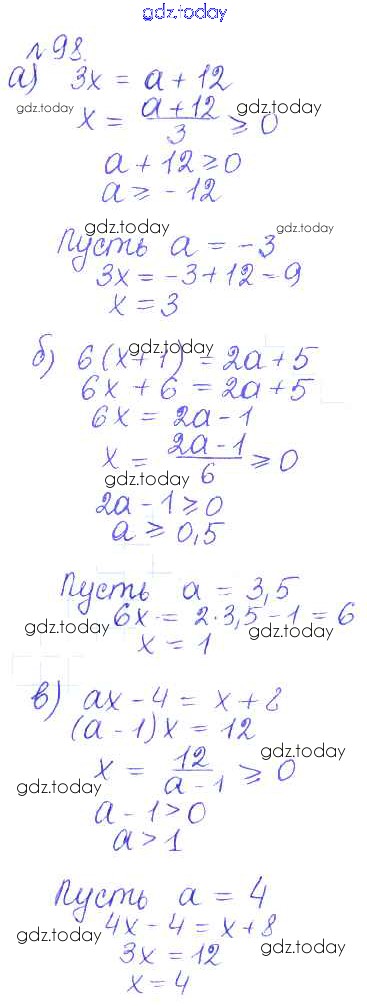 gdz.today
№98.
а) 3x = a + 12
gdz.today
x = (a+12)/3 ⩾ 0
gdz.today
a + 12 ⩾ 0
a ⩾ -12
gdz.today
gdz.today
Пусть a = -3
3x = -3 + 12 = 9
x = 3
gdz.today
б) 6(x+1) = 2a + 5
6x + 6 = 2a + 5
6x = 2a - 1
x = (2a-1)/6 ⩾ 0
gdz.today
2a - 1 ⩾ 0
a ⩾ 0,5
Пусть a = 3,5
6x = 2·3,5 - 1 = 6
gdz.today
gdz.today
x = 1
в) ax - 4 = x + 8
(a - 1)x = 12
gdz.today
x = 12/(a-1) ⩾ 0
gdz.today
a - 1 > 0
a > 1
Пусть a = 4
4x - 4 = x + 8
gdz.today
gdz.today
3x = 12
x = 4